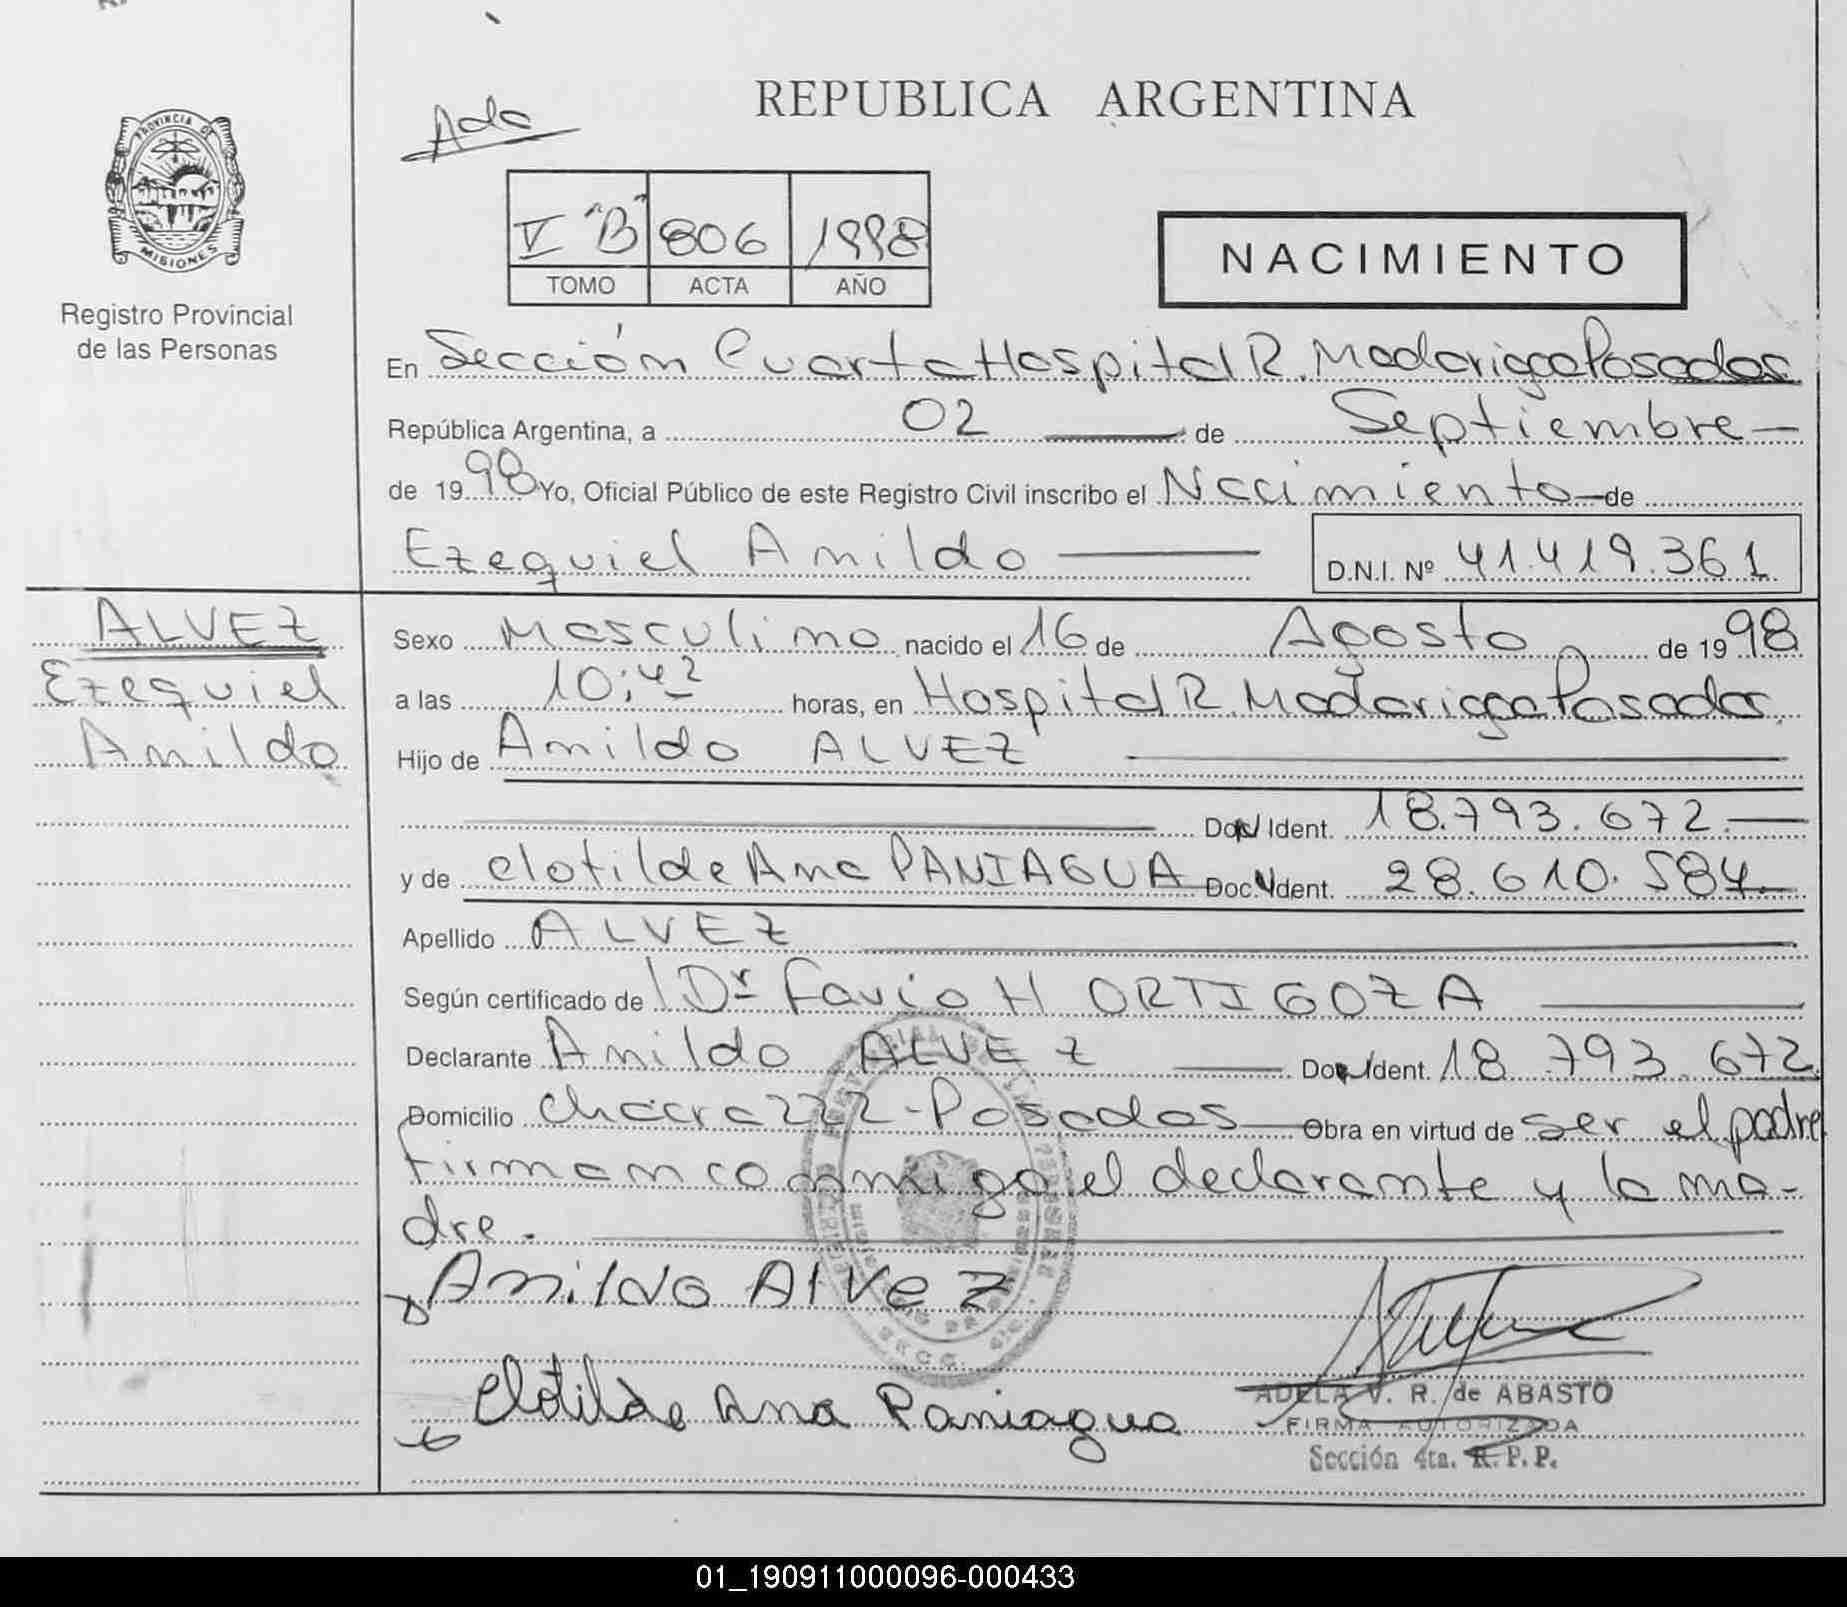 REPUBLICA ARGENTINA
Ada
V "B" 806 1998
TOMO ACTA AÑO
NACIMIENTO
PROVINCIA DE
MISIONES
Registro Provincial
de las Personas
En Sección Cuarta Hospital R. Madariaga Posadas
República Argentina, a 02 de Septiembre
de 1998 Yo, Oficial Público de este Registro Civil inscribo el Nacimiento de
Ezequiel Anildo D.N.I. Nº 41.419.361
ALVEZ
Ezequiel
Anildo
Sexo Masculino nacido el 16 de Agosto de 1998
a las 10:42 horas, en Hospital R. Madariaga Posadas
Hijo de Anildo ALVEZ
Ident. 18.793.672.
y de Clotilde Ana PANIAGUA Doc. Ident. 28.610.584.
Apellido ALVEZ
Según certificado de Dr Favio H ORTIGOZA
Declarante Anildo ALVEZ Ident. 18.793.672
Domicilio Chacra 222-Posadas Obra en virtud de ser el padre
firman conmigo el declarante y la ma-
dre.
Anildo Alvez
Clotilde Ana Paniagua
ADELA V. R. de ABASTO
FIRMA AUTORIZADA
Sección 4ta. R. P. P.
01_190911000096-000433